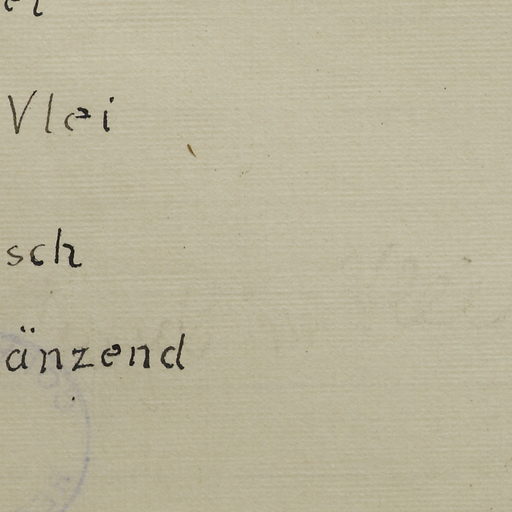 Vlei
sch
änzend